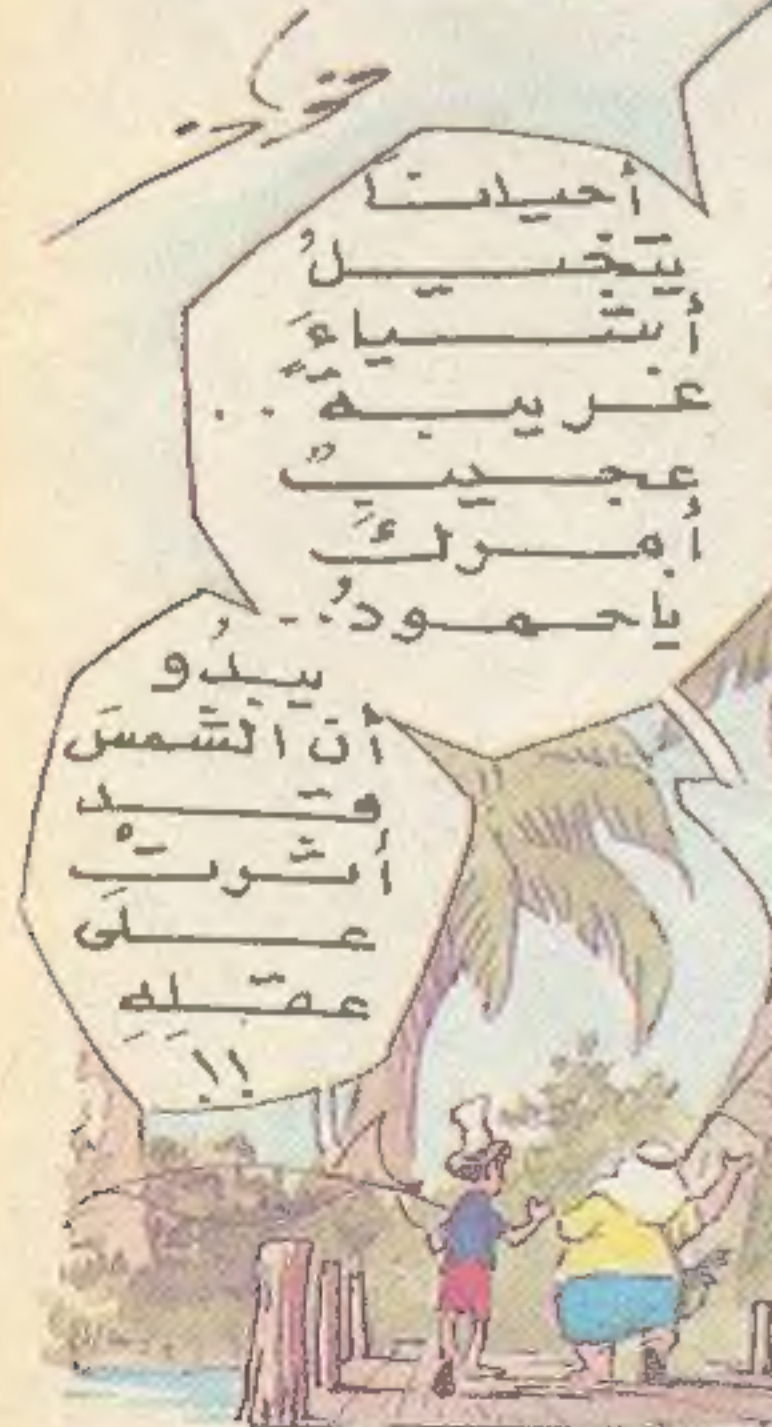 أحيانًا
يتخيلُ
أشياءَ
غريبةً..
عجيبٌ
أمركَ
ياحمودُ..
يبدُو
أنّ الشّمسَ
قد
أثّرتْ
علَى
عقلِهِ
!!